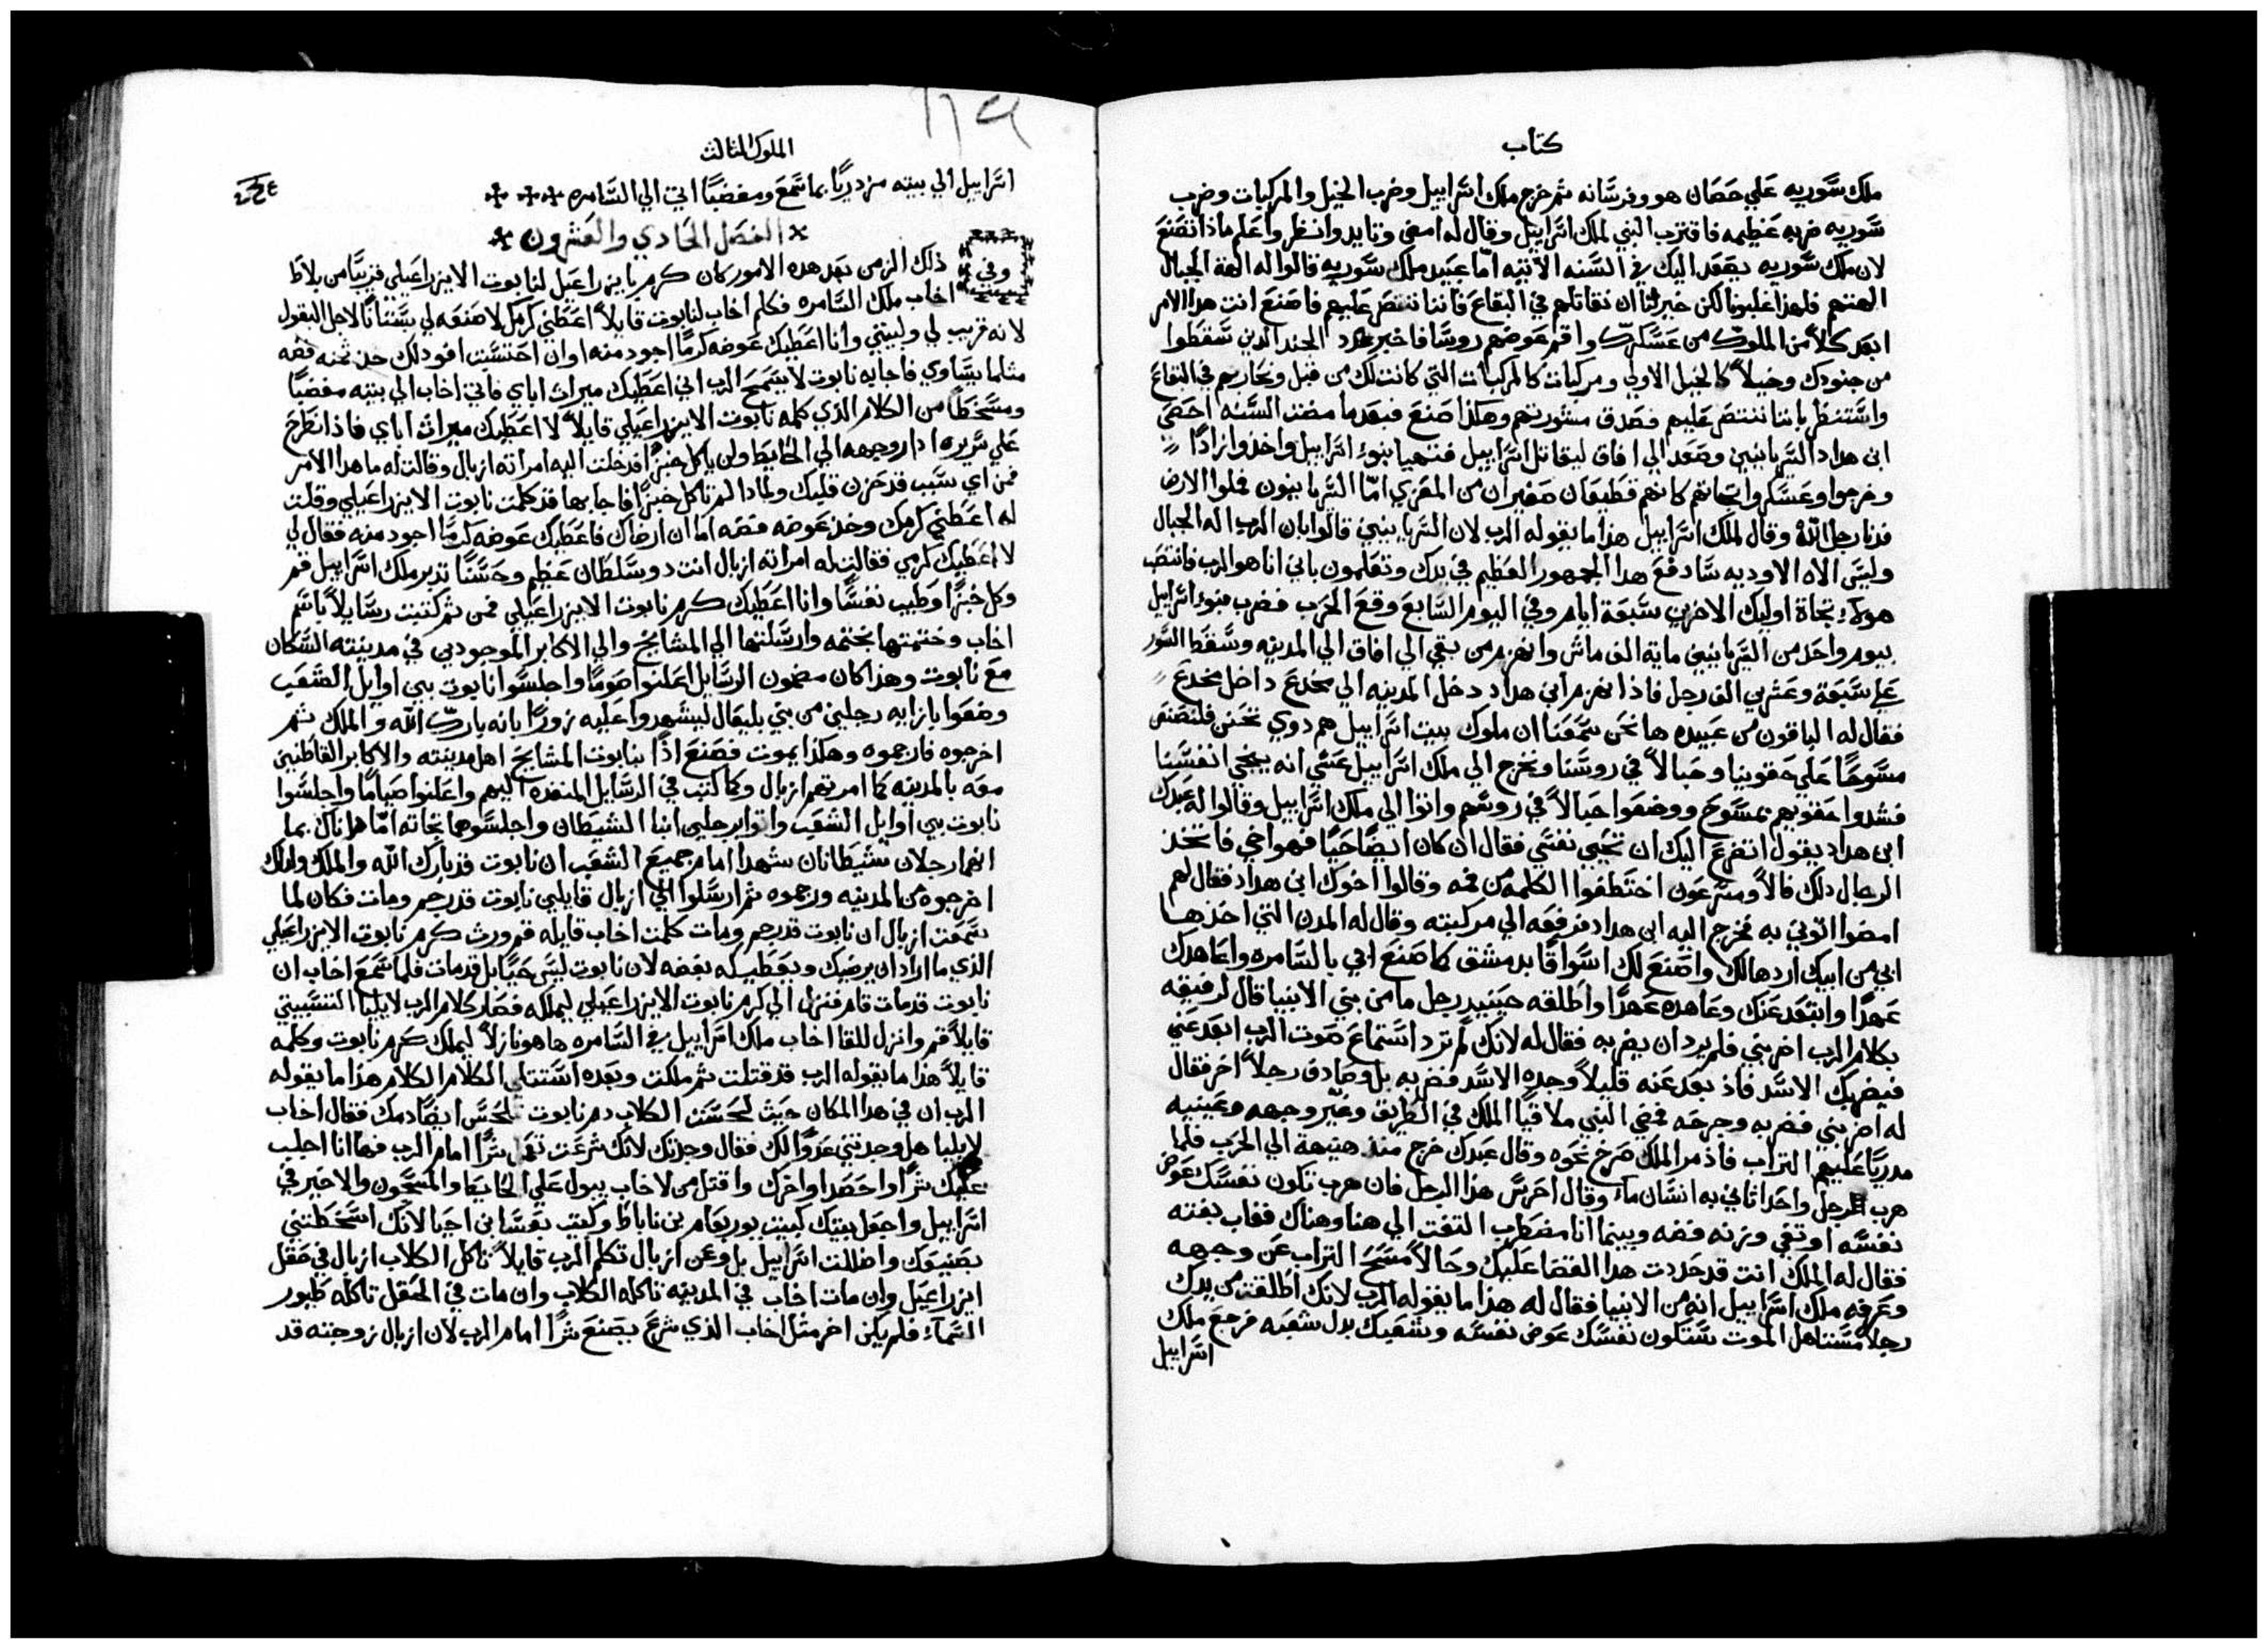 كتاب
ملك سوريه علي حصان هو وفرسانه ثم خرج ملك اسراييل وضرب الخيل والمركبات وضرب
سوريه ضربه عظيمه فاقترب النبي لملك اسراييل وقال له امضي وتايد وانظر واعلم ماذا تصنع
لان ملك سوريه يصعد اليك في السنه الاتيه امّا عبيد ملك سوريه قالوا له الهة الجبال
الهتهم فلهذا غلبونا لكن خير لنا ان نقاتلهم في البقاع فاننا ننتصر عليهم فاصنع انت هدا الامر
ابعد كلاً من الملوك من عسكرك واقم عوضهم روسا فاخبر عدد الجند الدين سقطوا
من جنودك وخيلاً كالخيل الاولي ومركبات كالمركبات التي كانت لك من قبل ونحاربهم في البقاع
واستنظر باننا ننتصر عليهم فصدق مشورتهم وهكذا صنع فبعدما مضت السنه احصي
ابن هداد السريانيين وصعد الي افاق ليقاتل اسراييل فتهيا بنوا اسراييل واخذوا زادًا
وخرجوا وعسكروا تجاههم كانهم قطيعان صغيران من المعزي امّا السريانيون فملوا الارض
فدنا رجل الله وقال لملك اسراييل هذا ما يقوله الرب لان السريانيين قالوا بان الرب اله الجبال
وليس الاه الاوديه سادفع هدا الجمهور العظيم في يدك وتعلمون باني انا هو الرب فانتصب
هولاء تجاة اوليك الاخرين سبعة ايام وفي اليوم السابع وقع الحرب فضرب بنوا اسراييل
بيوم واحد من السريانيين ماية الف ماش وانهزم من بقي الي افاق الي المدينه وسقط السور
علي سبعة وعشرين الف رجل فاذا انهزم ابن هداد دخل المدينه الي مخدع داخل مخدع
فقال له الباقون من عبيده ها نحن سمعنا ان ملوك بيت اسراييل هم دوي تحنن فلنضع
مسوحًا علي حقوينا وحبالاً في روسنا ونخرج الي ملك اسراييل عسي انه ينجي انفسنا
فشدوا حقويهم بمسوح ووضعوا حبالاً في روسهم واتوا الي ملك اسراييل وقالوا له عبدك
ابن هداد يقول اتضرع اليك ان تحيي نفسي فقال ان كان ايضًا حيًا فهو اخي فاتخذ
الرجال دلك فالاً ومسرعون اختطفوا الكلمه من فمه وقالوا اخوك ابن هداد فقال لهم
امضوا اتوني به فخرج اليه ابن هداد فرفعه الي مركبته وقال له المدن التي اخذها
ابي من ابيك اردها لك واصنع لك اسواقًا بدمشق كما صنع ابي بالسامره واعاهدك
عهدًا وابتعد عنك وعاهده عهدًا واطلقه حينيد رجل ما من بني الانبيا قال لرفيقه
بكلام الرب اضربني فلم يرد ان يضربه فقال له لانك لم ترد استماع صوت الرب ابعد عني
فيضربك الاسد فاذ بعد عنه قليلاً وجده الاسد فضربه بل وصادف رجلاً اخر فقال
له اضربني فضربه وجرحه فمضي النبي ملاقيًا الملك في الطريق وغير وجهه وعينيه
مدريًا عليهم التراب فاذ مر الملك صرخ نحوه وقال عبدك خرج منذ هنيهة الي الحرب فلما
هرب الرجل واحد اتاني به انسان ماء وقال احرس هذا الرجل فان هرب تكون نفسك عوض
نفسه او تفي وزنه فضه وبينما انا مضطرب التفت الي هنا وهناك فغاب بغته
فقال له الملك انت قد حددت هدا القضا عليك وحالاً مسح التراب عن وجهه
وعرفه ملك اسراييل انه من الانبيا فقال له هذا ما يقوله الرب لانك اطلقت من يدك
رجلاً مستاهل الموت ستكون نفسك عوض نفسه وشعبك بدل شعبه فرجع ملك
اسراييل
الملوك الثالث
اسراييل الي بيته مزدريًا بما سمع ومغضبًا اتي الي السامره
الفصل الحادي والعشرون
وفي ذلك الزمن بعد هده الامور كان كرم بايزراعيل لنابوت الايزراعيلي قريبًا من بلاط
اخاب ملك السامره فكلم اخاب لنابوت قايلاً اعطني كرمك لاصنعه لي بستانًا لاجل البقول
لانه قريب لي ولبيتي وانا اعطيك عوضه كرمًا اجود منه او ان احتسبت افود لك خذ ثمنه فضه
مثلما يساوي فاجابه نابوت لا يسمح الرب اني اعطيك ميراث اباي فاتي اخاب الي بيته مغضبًا
ومسخطًا من الكلام الذي كلمه نابوت الايزراعيلي قايلاً لا اعطيك ميراث اباي فاذ انطرح
علي سريره ادار وجهه الي الحايط ولم ياكل خبزًا فدخلت اليه امراته ازبال وقالت له ما هدا الامر
فمن اي سبب قد حزن قلبك ولمادا لم تاكل خبزًا فاجابها قد كلمت نابوت الايزراعيلي وقلت
له اعطني كرمك وخذ عوضه فضه اما ان ارضاك فاعطيك عوضه كرمًا اجود منه فقال لي
لا اعطيك كرمي فقالت له امراته ازبال انت دو سلطان عظيم وحسنًا تدبر ملك اسراييل قم
وكل خبزًا وطيب نفسًا وانا اعطيك كرم نابوت الايزراعيلي فمن ثم كتبت رسايلاً باسم
اخاب وختمتها بختمه وارسلتها الي المشايخ والي الاكابر الموجودين في مدينته السكان
مع نابوت وهذا كان مضمون الرسايل اعلنوا صومًا واجلسوا نابوت بين اوايل الشعب
وضعوا بازايه رجلين من بني بليعال ليشهدوا عليه زورًا بانه بارك الله والملك ثم
اخرجوه فارجموه وهكذا يموت فصنع اذًا بنابوت المشايخ اهل مدينته والاكابر القاطنين
معه بالمدينه كما امرتهم ازبال وكما كتب في الرسايل المنفذه اليهم واعلنوا صيامًا واجلسوا
نابوت بين اوايل الشعب واتوا برجلين ابنا الشيطان واجلسوهما تجاهه امّا هذانك بما
انهما رجلان شيطانان شهدا امام جميع الشعب ان نابوت قد بارك الله والملك ولدلك
اخرجوه من المدينه ورجموه ثم ارسلوا الي ازبال قايلين نابوت قد رجم ومات فكان لما
سمعت ازبال ان نابوت قد رجم ومات كلمت اخاب قايله قم ورث كرم نابوت الايزراعيلي
الذي ما اراد ان يرضيك ويعطيكه بفضه لان نابوت ليس حيًا بل قد مات فلما سمع اخاب ان
نابوت قد مات قام فنزل الي كرم نابوت الايزراعيلي ليملكه فصار كلام الرب لايليا التسبيتي
قايلاً قم وانزل للقا اخاب ملك اسراييل في السامره ها هو نازلاً ليملك كرم نابوت وكلمه
قايلاً هذا ما يقوله الرب قد قتلت ثم ملكت وبعده استتلي الكلام الكلام هذا ما يقوله
الرب ان في هدا المكان حيث لحست الكلاب دم نابوت تلحس ايضًا دمك فقال اخاب
لايليا هل وجدتني عدوًا لك فقال وجدتك لانك شرعت تفعل شرًا امام الرب فها انا اجلب
عليك شرًا واحصد اواخرك واقتل من لاخاب يبول علي الحايط والمسجون والاخير في
اسراييل واجعل بيتك كبيت يوربعام بن ناباط وكبيت بعسا ابن احيا لانك اسخطتني
بصنيعك واضللت اسراييل بل وعن ازبال تكلم الرب قايلاً تاكل الكلاب ازبال في حقل
ايزراعيل وان مات اخاب في المدينه تاكله الكلاب وان مات في الحقل تاكله طيور
السماء فلم يكن اخر مثل اخاب الذي شرع يصنع شرًا امام الرب لان ازبال زوجته قد